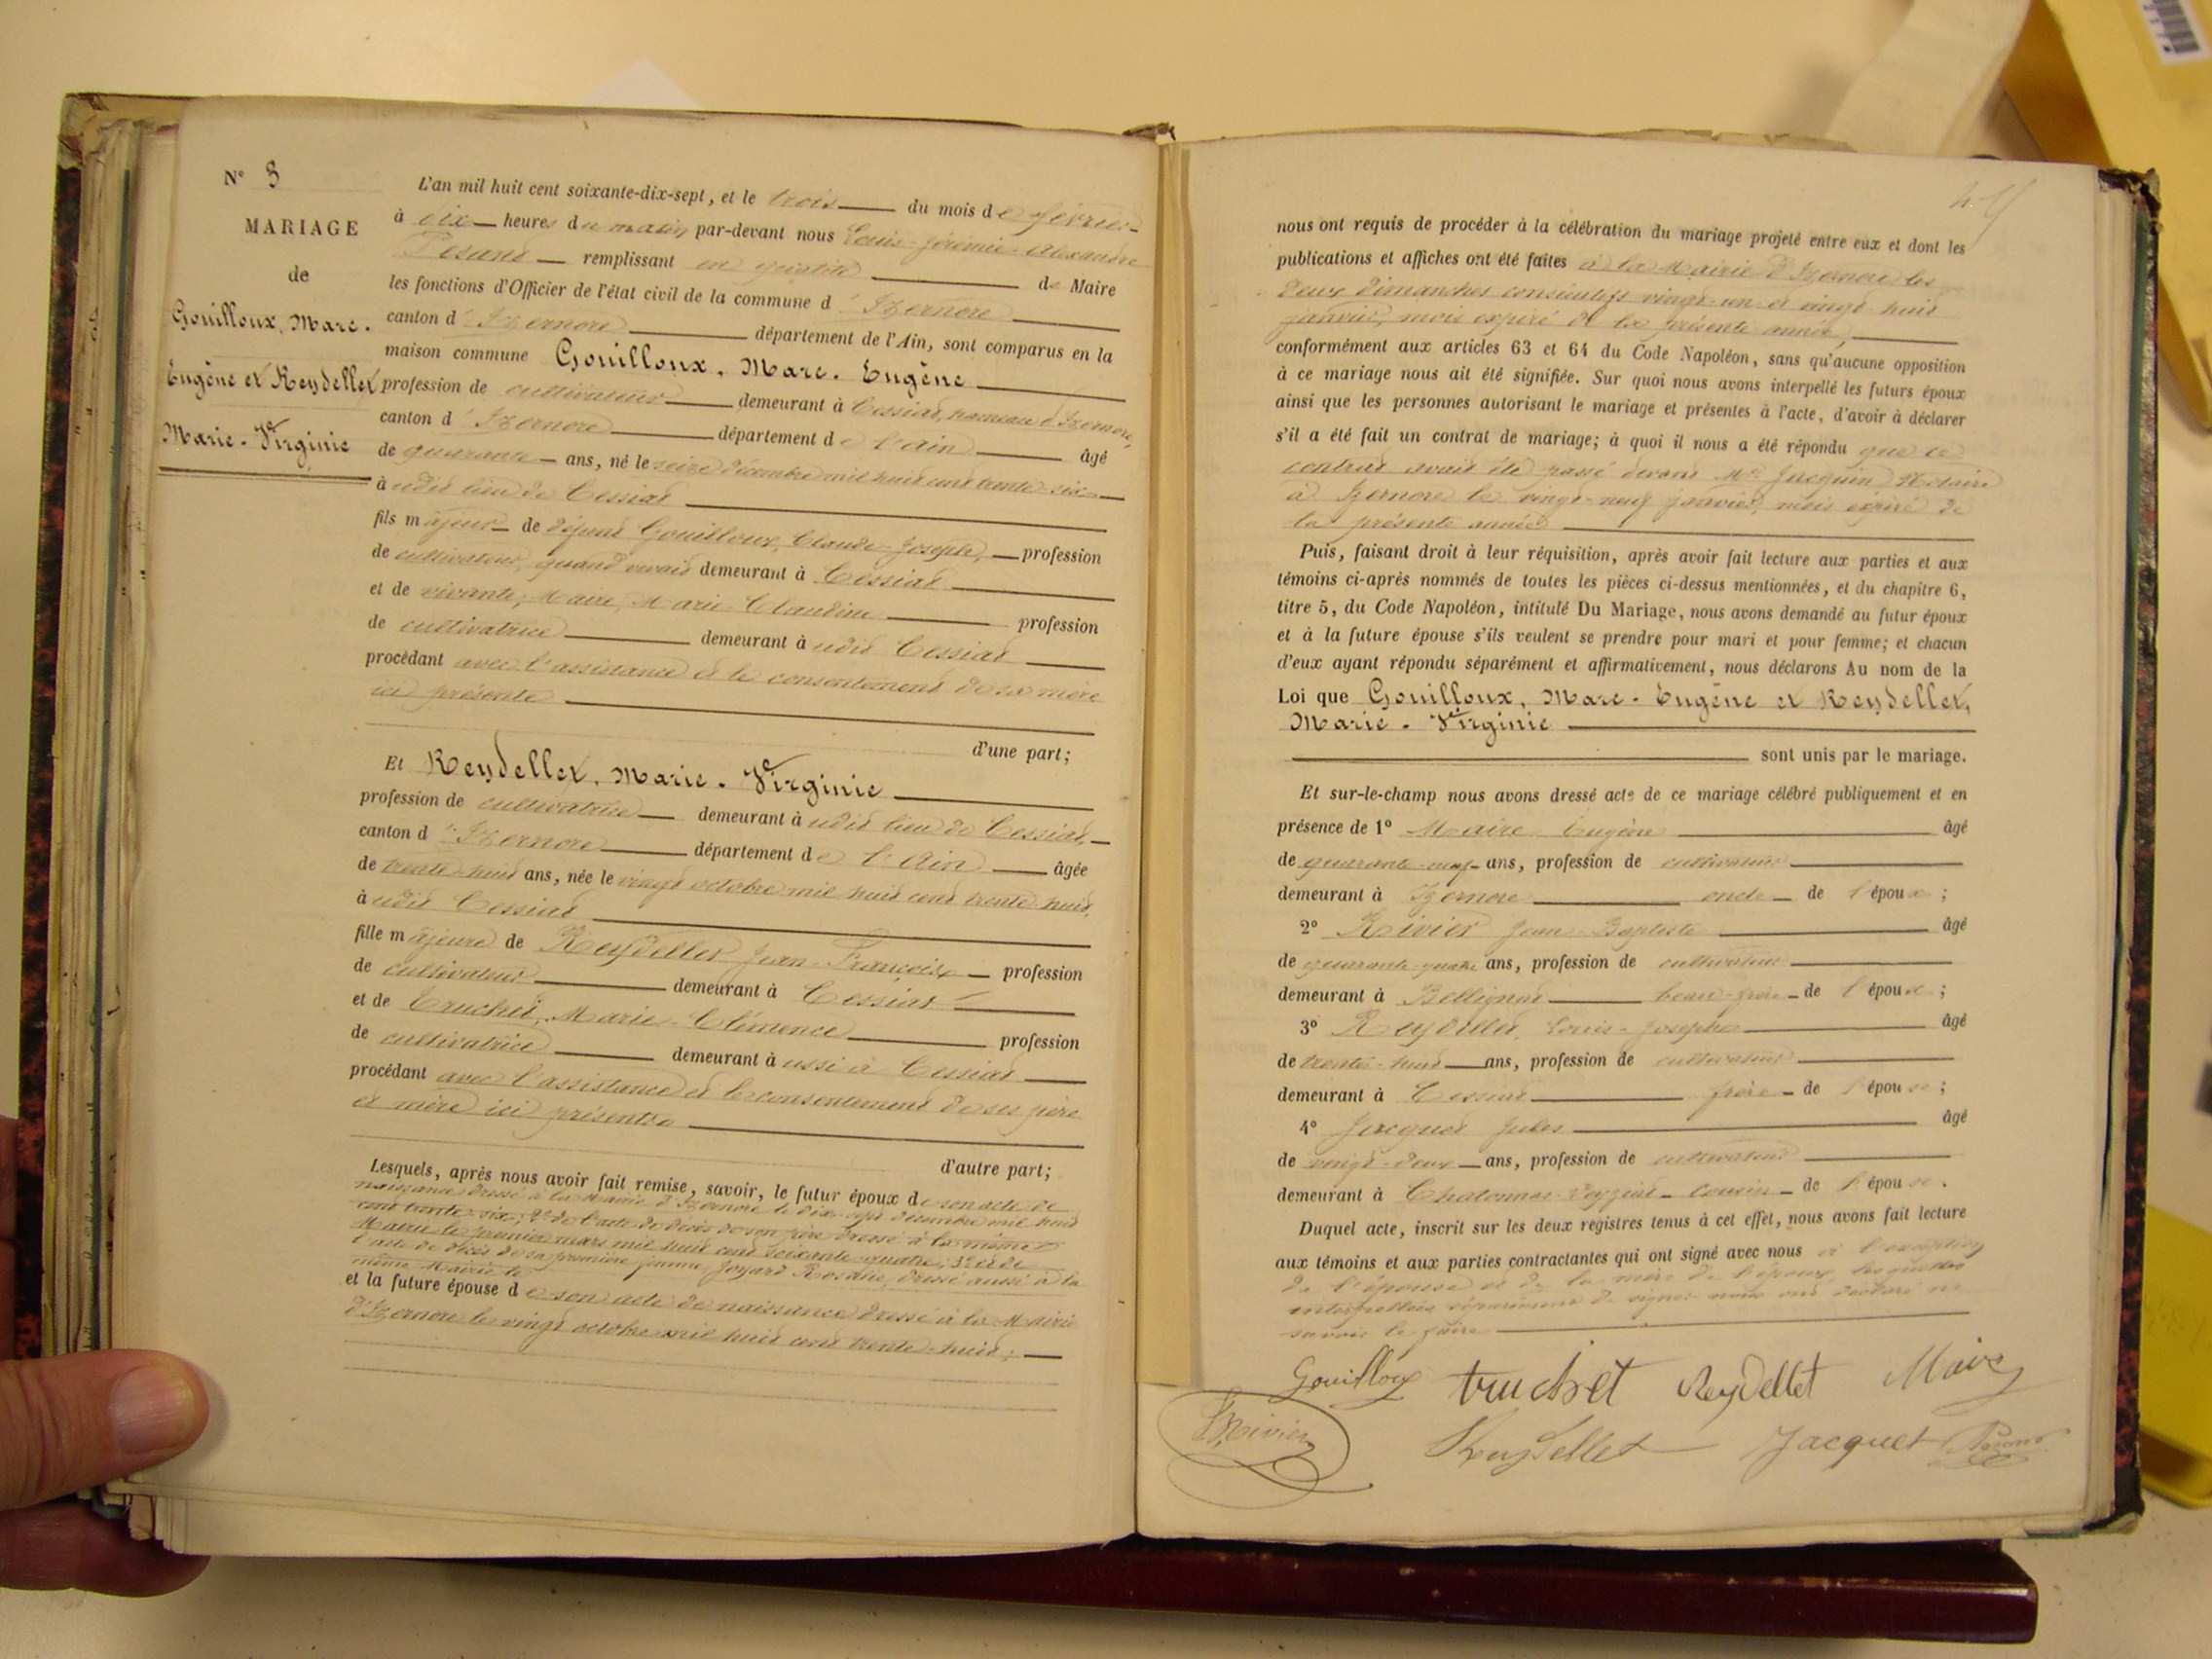 N° 3
MARIAGE
de
Gouilloux, Marc.
Eugène et Reydellet
Marie-Virginie
L'an mil huit cent soixante-dix-sept, et le trois du mois de février
à dix heures du matin par-devant nous Louis-Jérémie-Alexandre
remplissant en qualité de Maire
les fonctions d'Officier de l'état civil de la commune d'Izernore
canton d'Izernore département de l'Ain, sont comparus en la
maison commune Gouilloux, Marc. Eugène
profession de cultivateur demeurant à Cessiat, hameau d'Izernore,
canton d'Izernore département de l'Ain âgé
de quarante ans, né le seize décembre mil huit cent trente-six
à udit lieu de Cessiat
fils majeur de défunt Gouilloux, Claude-Joseph, profession
de cultivateur, quand vivait demeurant à Cessiat
et de vivante, Maire, Marie Claudine profession
de cultivatrice demeurant à udit Cessiat
procédant avec l'assistance et le consentement de sa mère
ici présente
d'une part;
Et Reydellet, Marie-Virginie
profession de cultivatrice demeurant à udit lieu de Cessiat,
canton d'Izernore département de l'Ain âgée
de trente-huit ans, née le vingt octobre mil huit cent trente-huit,
à udit Cessiat
fille majeure de Reydellet Jean-François, profession
de cultivateur demeurant à Cessiat
et de Truchet, Marie-Clémence profession
de cultivatrice demeurant à ussi à Cessiat
procédant avec l'assistance et le consentement de ses père
et mère ici présents
d'autre part;
Lesquels, après nous avoir fait remise, savoir, le futur époux de son acte de
naissance dressé à la Mairie d'Izernore le dix-sept décembre mil huit
cent trente-six; 2° de l'acte de décès de son père dressé à la même
Mairie le premier mars mil huit cent soixante-quatre; 3° et de
l'acte de décès de sa première femme, Joyard Rosalie, dressé aussi à la
même Mairie le
et la future épouse de son acte de naissance dressé à la Mairie
d'Izernore le vingt octobre mil huit cent trente-huit;
nous ont requis de procéder à la célébration du mariage projeté entre eux et dont les
publications et affiches ont été faites à la Mairie d'Izernore les
deux dimanches consécutifs vingt-un et vingt-huit
janvier, mois expiré de la présente année,
conformément aux articles 63 et 64 du Code Napoléon, sans qu'aucune opposition
à ce mariage nous ait été signifiée. Sur quoi nous avons interpellé les futurs époux
ainsi que les personnes autorisant le mariage et présentes à l'acte, d'avoir à déclarer
s'il a été fait un contrat de mariage; à quoi il nous a été répondu que le
contrat avait été passé devant Me Jacquin Notaire
à Izernore le vingt-neuf janvier, mois expiré de
la présente année
Puis, faisant droit à leur réquisition, après avoir fait lecture aux parties et aux
témoins ci-après nommés de toutes les pièces ci-dessus mentionnées, et du chapitre 6,
titre 5, du Code Napoléon, intitulé Du Mariage, nous avons demandé au futur époux
et à la future épouse s'ils veulent se prendre pour mari et pour femme; et chacun
d'eux ayant répondu séparément et affirmativement, nous déclarons Au nom de la
Loi que Gouilloux, Marc-Eugène et Reydellet,
Marie-Virginie
sont unis par le mariage.
Et sur-le-champ nous avons dressé acte de ce mariage célébré publiquement et en
présence de 1° Maire Eugène âgé
de quarante-neuf ans, profession de cultivateur
demeurant à Izernore oncle de l'époux;
2° Rivier Jean-Baptiste âgé
de quarante-quatre ans, profession de cultivateur
demeurant à Bellignat beau-frère de l'épouse;
3° Reydellet, Louis-Joseph âgé
de trente-huit ans, profession de cultivateur
demeurant à Cessiat frère de l'épouse;
4° Jacquet Jules âgé
de vingt-deux ans, profession de cultivateur
demeurant à cousin de l'épouse.
Duquel acte, inscrit sur les deux registres tenus à cet effet, nous avons fait lecture
aux témoins et aux parties contractantes qui ont signé avec nous à l'exception
de l'épouse et de la mère de l'époux lesquelles
interpellées séparément de signer nous ont déclaré ne
savoir le faire
Gouilloux truchet Reydellet Maire
Rivier Reydellet Jacquet